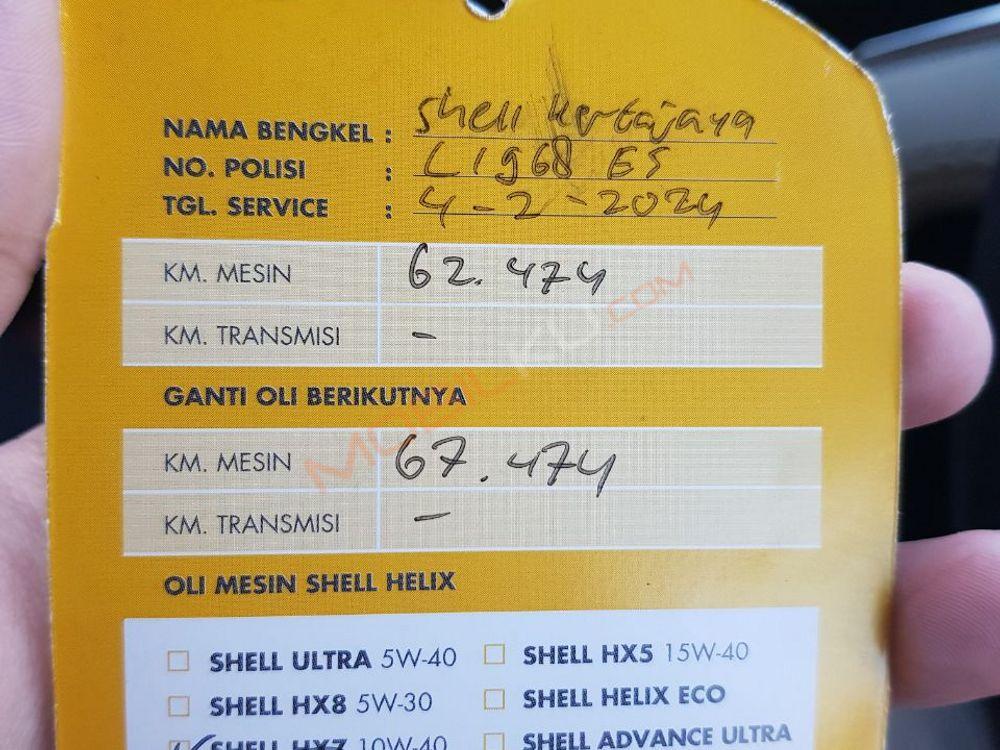 NAMA BENGKEL : Shell Kertajaya
NO. POLISI : L 1968 ES
TGL. SERVICE : 4-2-2024
KM. MESIN 62.474
KM. TRANSMISI -
GANTI OLI BERIKUTNYA
KM. MESIN 67.474
KM. TRANSMISI -
MOBILKU.COM
OLI MESIN SHELL HELIX
SHELL ULTRA 5W-40 SHELL HX5 15W-40
SHELL HX8 5W-30 SHELL HELIX ECO
SHELL HX7 10W-40 SHELL ADVANCE ULTRA